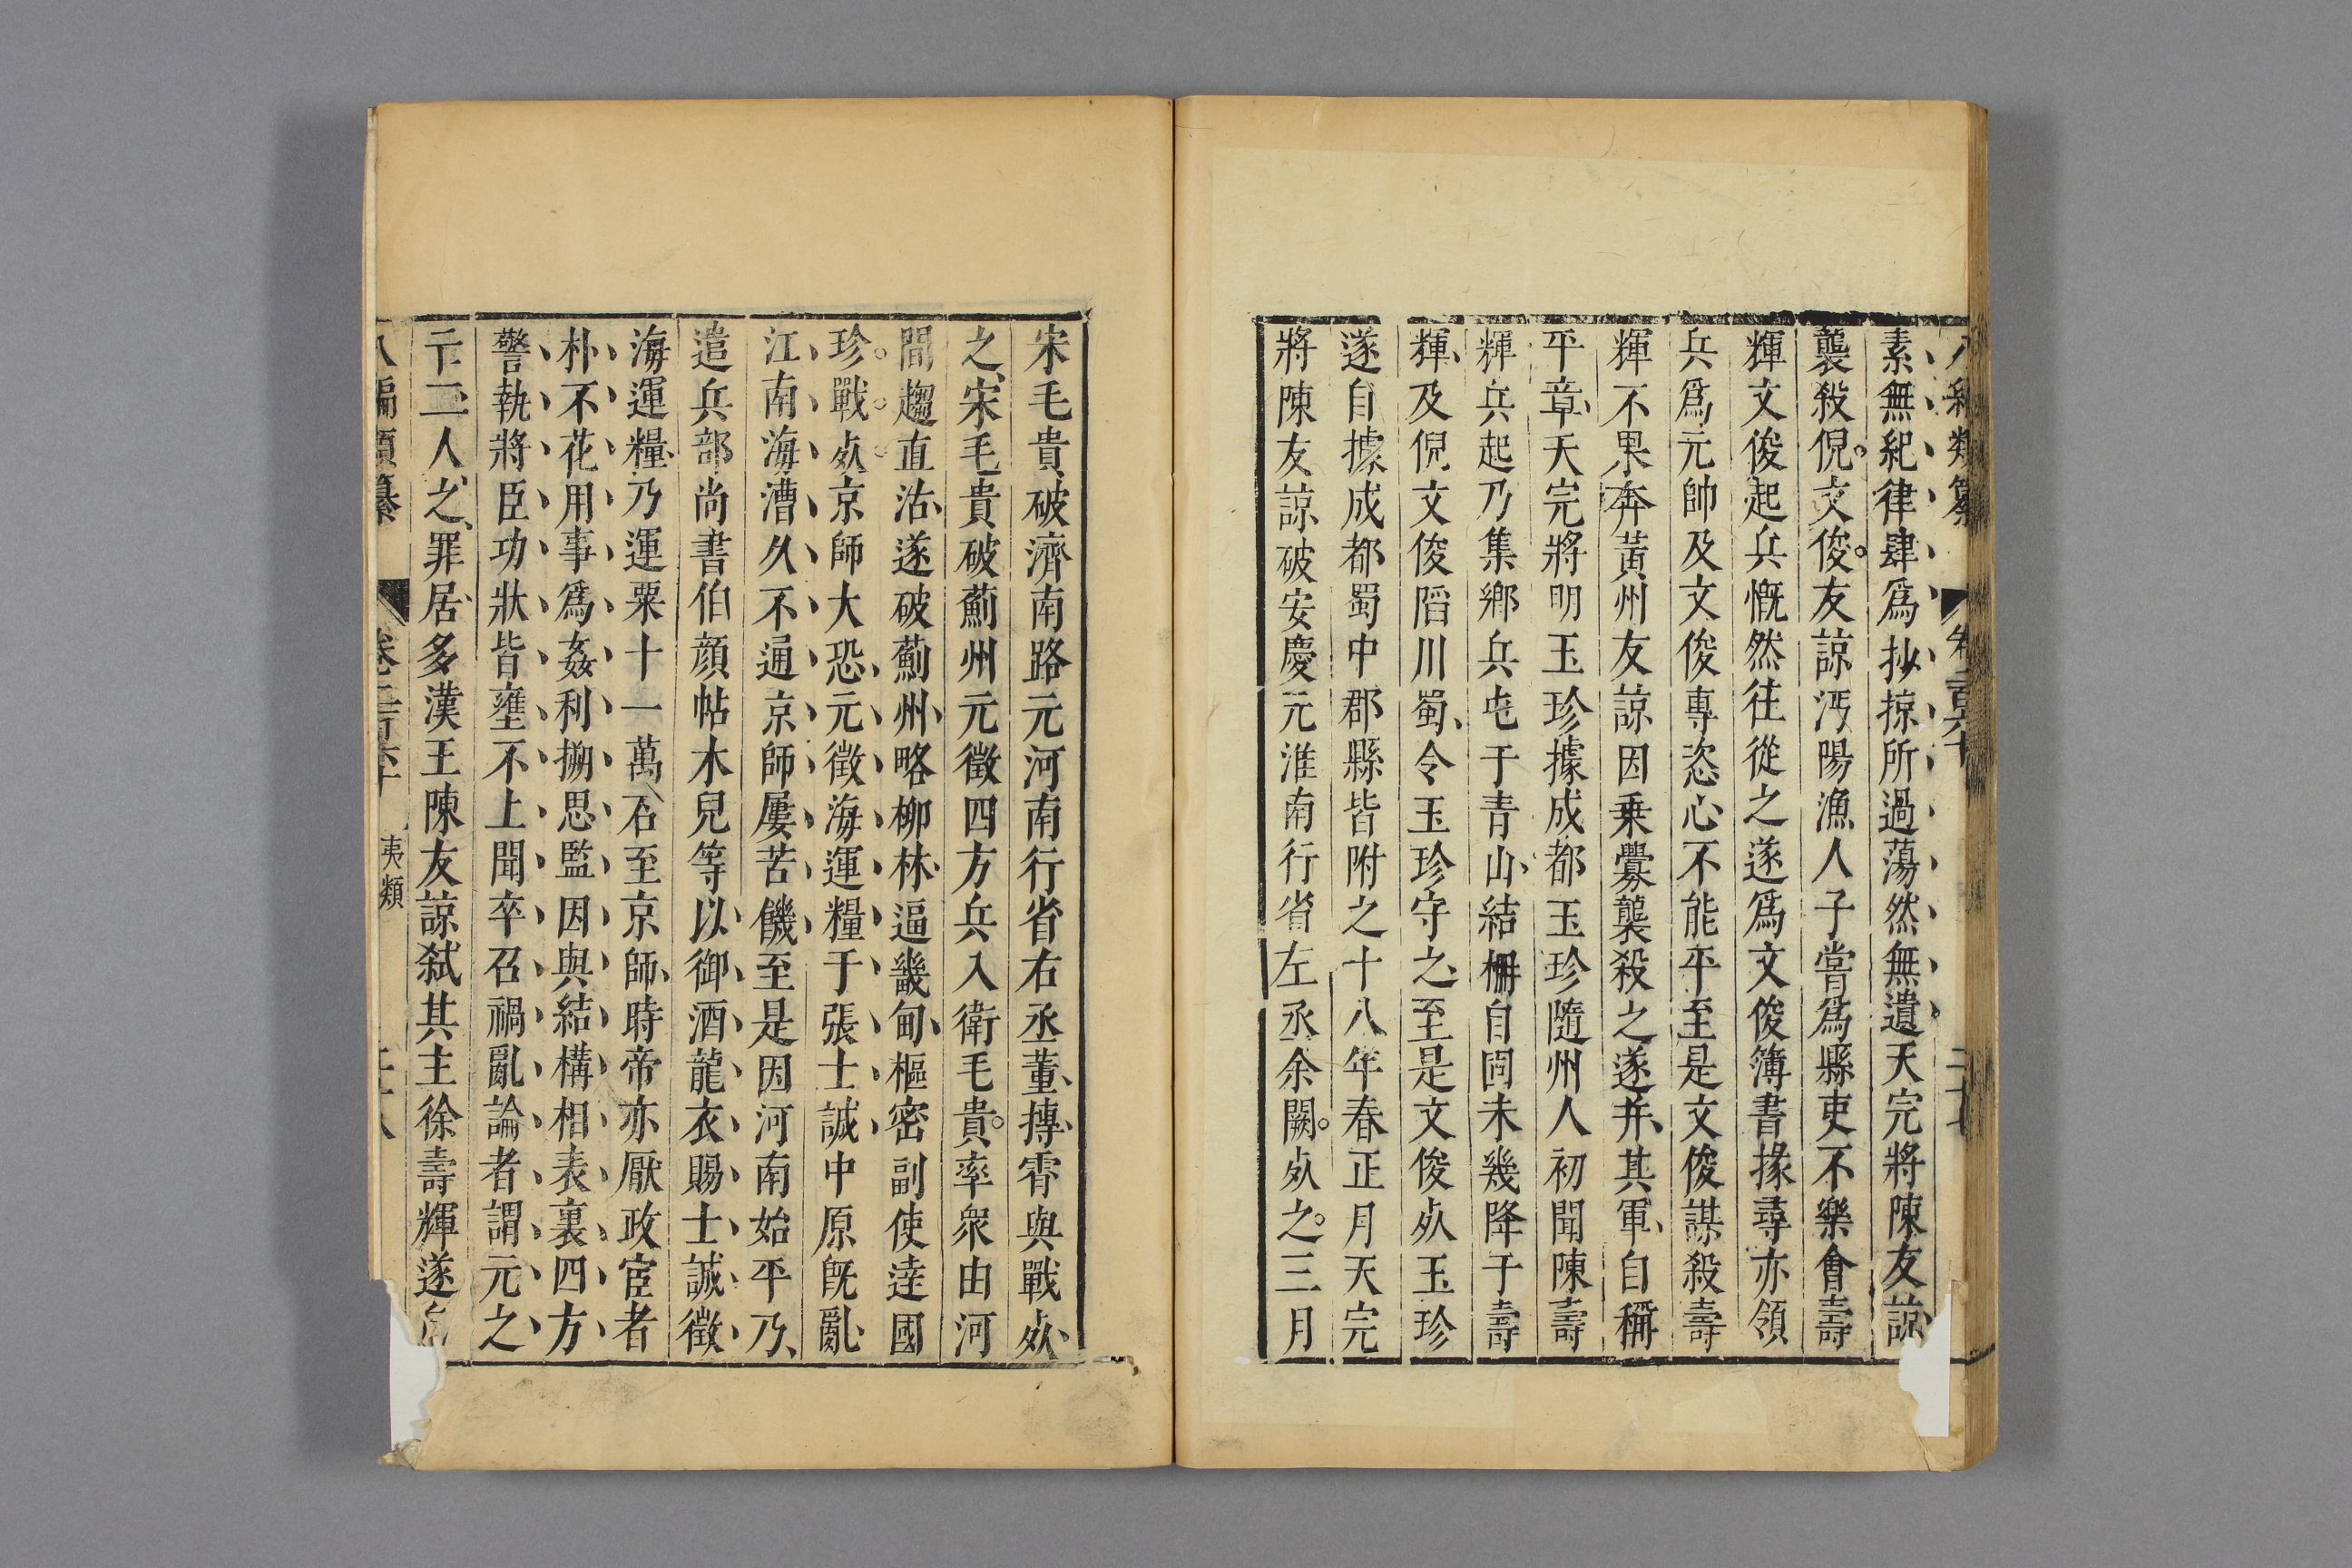 素無紀律肆爲抄掠所過蕩然無遺天完將陳友諒
襲殺倪文俊友諒沔陽漁人子嘗爲縣吏不樂會壽
輝文俊起兵慨然往從之遂爲文俊簿書掾尋亦領
兵爲元帥及文俊專恣心不能平至是文俊謀殺壽
輝不果奔黃州友諒因乗釁襲殺之遂并其軍自稱
平章天完將明玉珍據成都玉珍隨州人初聞陳壽
輝兵起乃集鄉兵屯于青山結柵自固未幾降于壽
輝及倪文俊陷川蜀令玉珍守之至是文俊㱙玉珍
遂自據成都蜀中郡縣皆附之十八年春正月天完
將陳友諒破安慶元淮南行省左丞余闕㱙之三月
宋毛貴破濟南路元河南行省右丞董摶霄與戰㱙
之宋毛貴破薊州元徵四方兵入衛毛貴率衆由河
間趨直沽遂破薊州略柳林逼畿甸樞密副使逹國
珍戰㱙京師大恐元徵海運糧于張士誠中原旣亂
江南海漕久不通京師屢苦饑至是因河南始平乃
遣兵部尚書伯顔帖木兒等以御酒龍衣賜士誠徵
海運糧乃運粟十一萬石至京師時帝亦厭政宦者
朴不花用事爲姦利搠思監因與結構相表裏四方
警執將臣功狀皆壅不上聞卒召禍亂論者謂元之
二人之罪居多漢王陳友諒弑其主徐壽輝遂
八編類纂 夷類